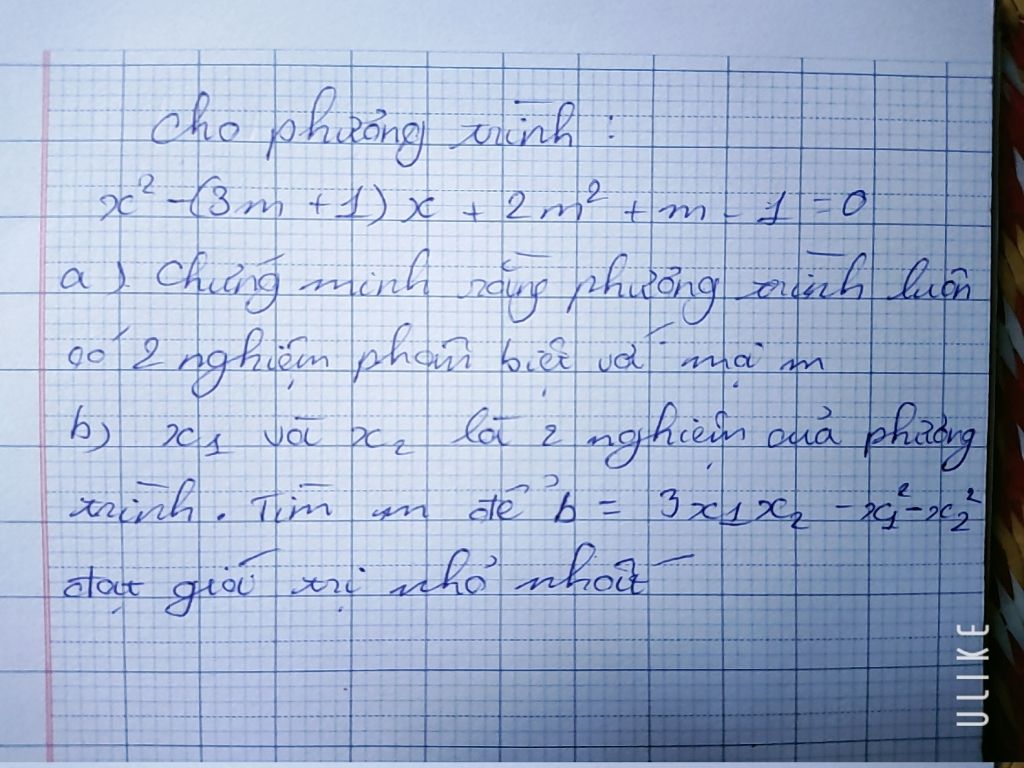 Cho phương trình :
x² - (3m + 1) x + 2m² + m - 1 = 0
a) Chứng minh rằng phương trình luôn
có 2 nghiệm phân biệt với mọi m
b) x₁ và x₂ là 2 nghiệm của phương
trình. Tìm m để b = 3x₁x₂ - x₁² - x₂²
đạt giá trị nhỏ nhất
ULIKE